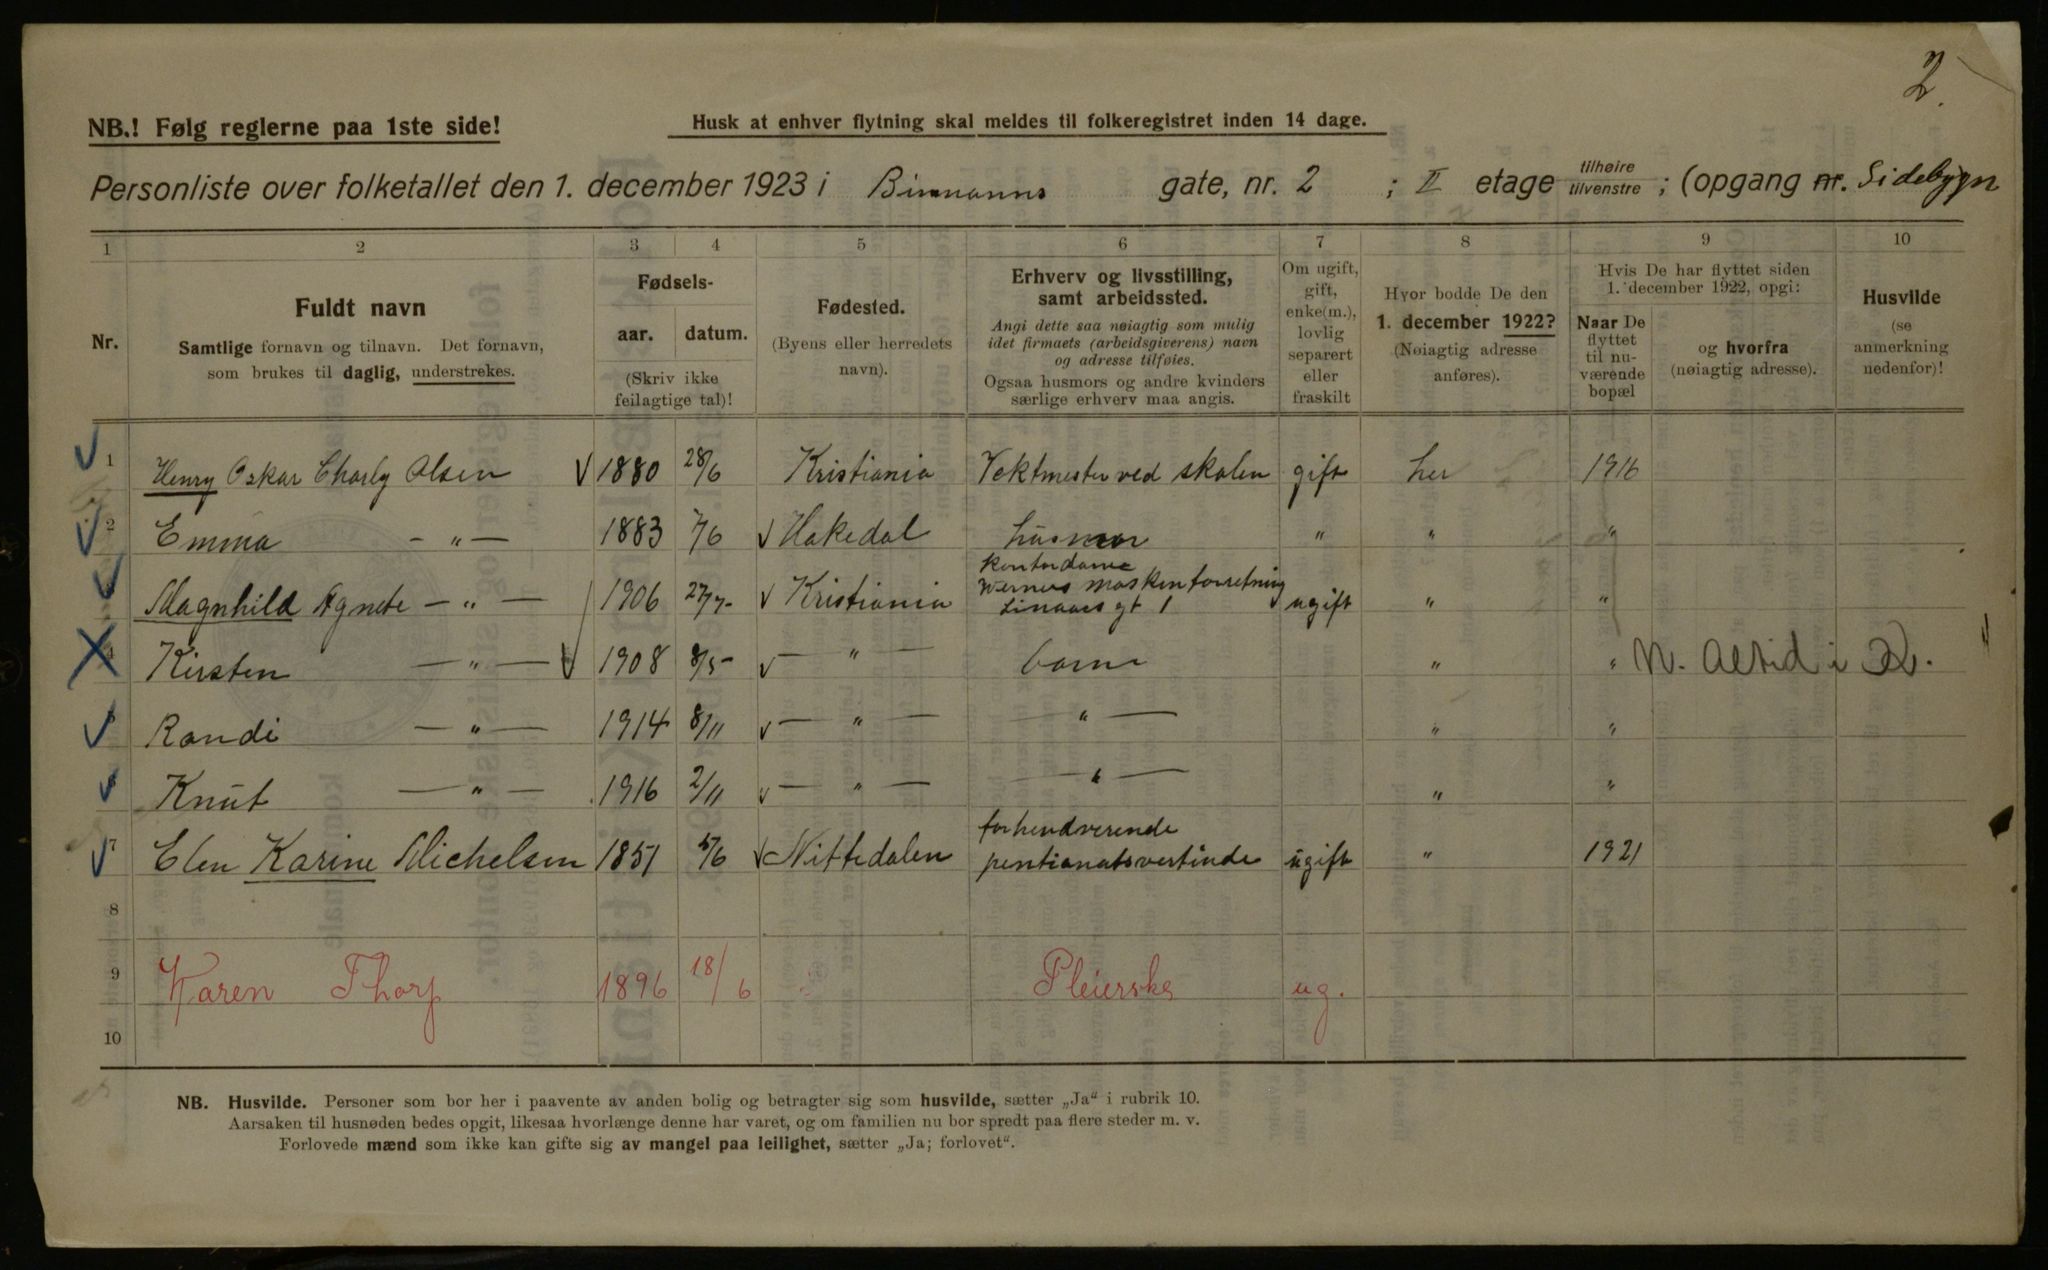 2.
NB.! Følg reglerne paa 1ste side!
Husk at enhver flytning skal meldes til folkeregistret inden 14 dage.
Personliste over folketallet den 1. december 1923 i Birmanns gate, nr. 2 ; II etage tilhøire tilvenstre ; (opgang nr. Sidebygn
1 2 3 4 5 6 7 8 9 10
Nr.
Fuldt navn
Samtlige fornavn og tilnavn. Det fornavn,
som brukes til daglig, understrekes.
Fødsels-
aar. datum.
(Skriv ikke
feilagtige tal)!
Fødested.
(Byens eller herredets
navn).
Erhverv og livsstilling,
samt arbeidssted.
Angi dette saa nøiagtig som mulig
idet firmaets (arbeidsgiverens) navn
og adresse tilføies.
Ogsaa husmors og andre kvinders
særlige erhverv maa angis.
Om ugift,
gift,
enke(m.),
lovlig
separert
eller
fraskilt
Hvor bodde De den
1. december 1922?
(Nøiagtig adresse
anføres).
Hvis De har flyttet siden
1. december 1922, opgi:
Naar De
flyttet
til nu-
værende
bopæl
og hvorfra
(nøiagtig adresse).
Husvilde
(se
anmerkning
nedenfor)!
1 Henry Oskar Charly Olsen 1880 28/6 Kristiania Vektmester ved skolen gift her 1916
2 Emma - „ - 1883 7/6 Hakedal husmor " " "
kontordame
Werners maskinforretning
3 Magnhild Agnete - „ - 1906 27/7 Kristiania gt 1 ugift " "
4 Kirsten - „ - 1908 8/5 - „ - barn " " N. Altid i K.
5 Randi - „ - 1914 8/11 - „ - - „ - " "
6 Knut - „ - 1916 2/11 - „ - - „ - " "
forhendverende
7 Elen Karine Michelsen 1851 5/6 Nittedalen pentionatsvertinde ugift " 1921
8
9 Karen Thorp 1896 18/6 Pleierske ug.
10
NB. Husvilde. Personer som bor her i paavente av anden bolig og betragter sig som husvilde, sætter „Ja" i rubrik 10.
Aarsaken til husnøden bedes opgit, likesaa hvorlænge denne har varet, og om familien nu bor spredt paa flere steder m. v.
Forlovede mænd som ikke kan gifte sig av mangel paa leilighet, sætter „Ja; forlovet".